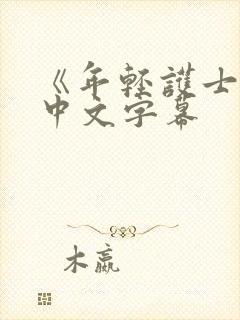 《年轻護士
中文字幕
木嬴